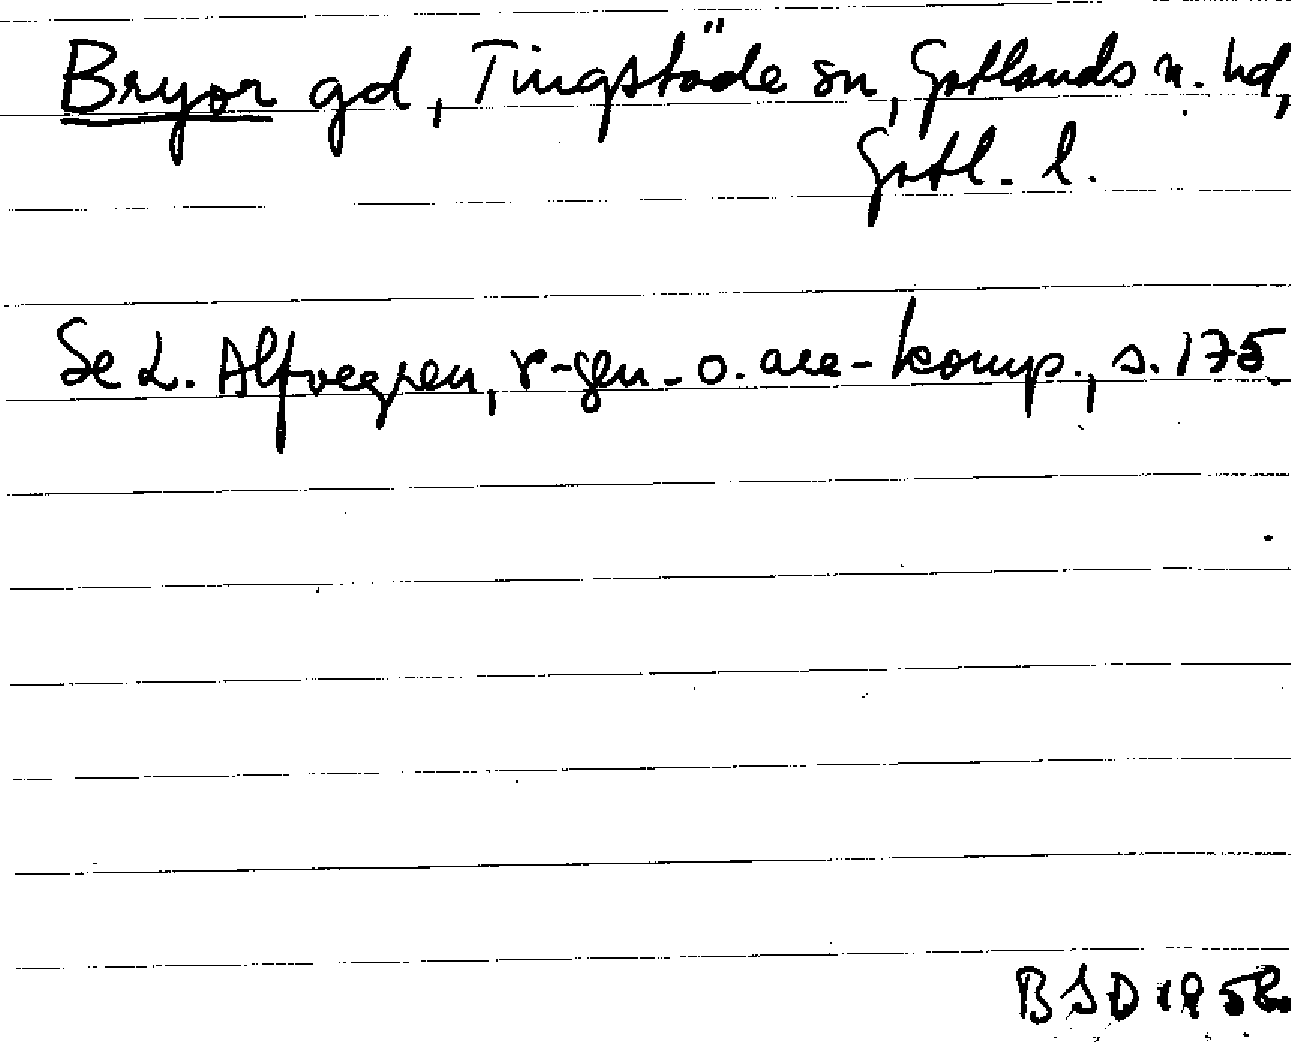 Bryor gd, Tingstäde sn, Gotlands n. hd,
Gotl. l.
Se L. Alfvegren, r-gen. o. are-komp., s. 175
BSD 1952